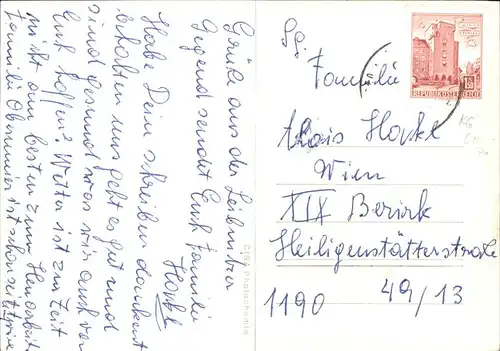 Grüße aus der Leibnitzer
Gegend sendet Euch Familie
Hackl
Habe Dein schreiben dankent
erhalten uns geht es gut und
sind gesund was wir auch von
Euch hoffen? Wetter ist zur Zeit
nicht am besten zum Heuarbeiten
Familie Obermeier ist schon
Pg.
Familie
Alois Hackl
Wien
XIX Bezirk
Heiligenstätterstraße
49/13
1190
REPUBLIK ÖSTERREICH
Photochemie